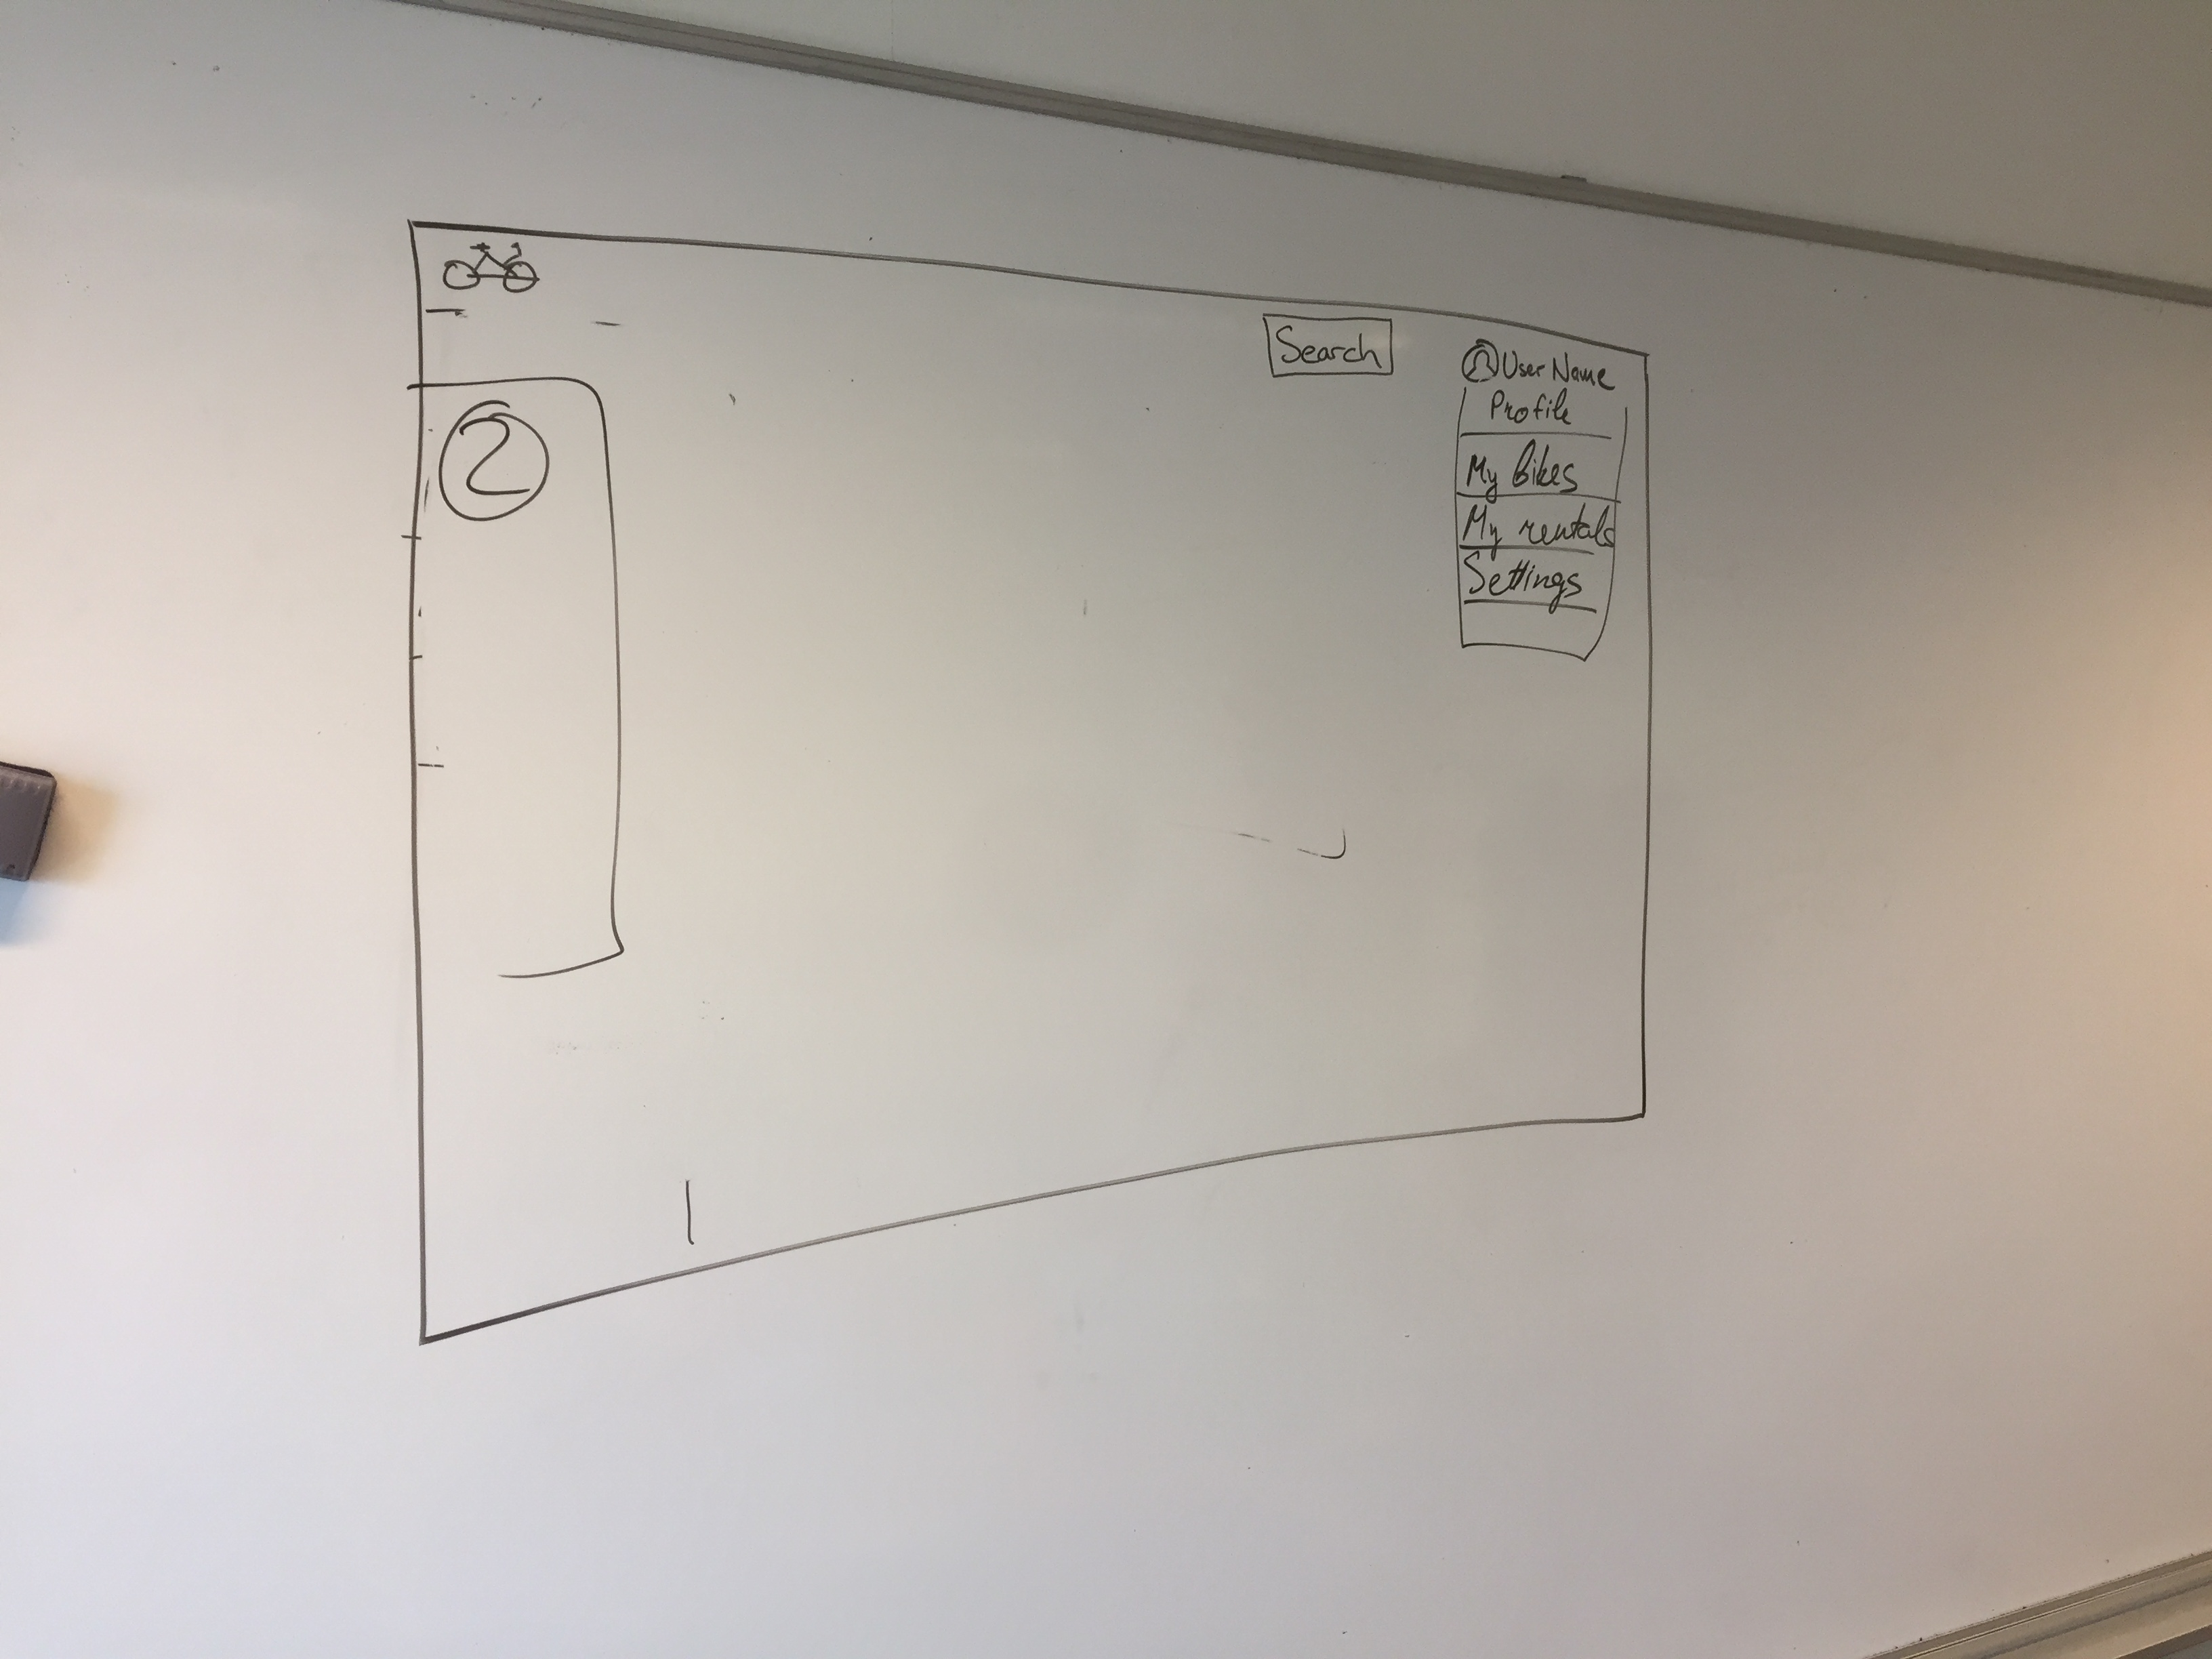 Search
User Name
Profile
My bikes
My rentals
Settings
2